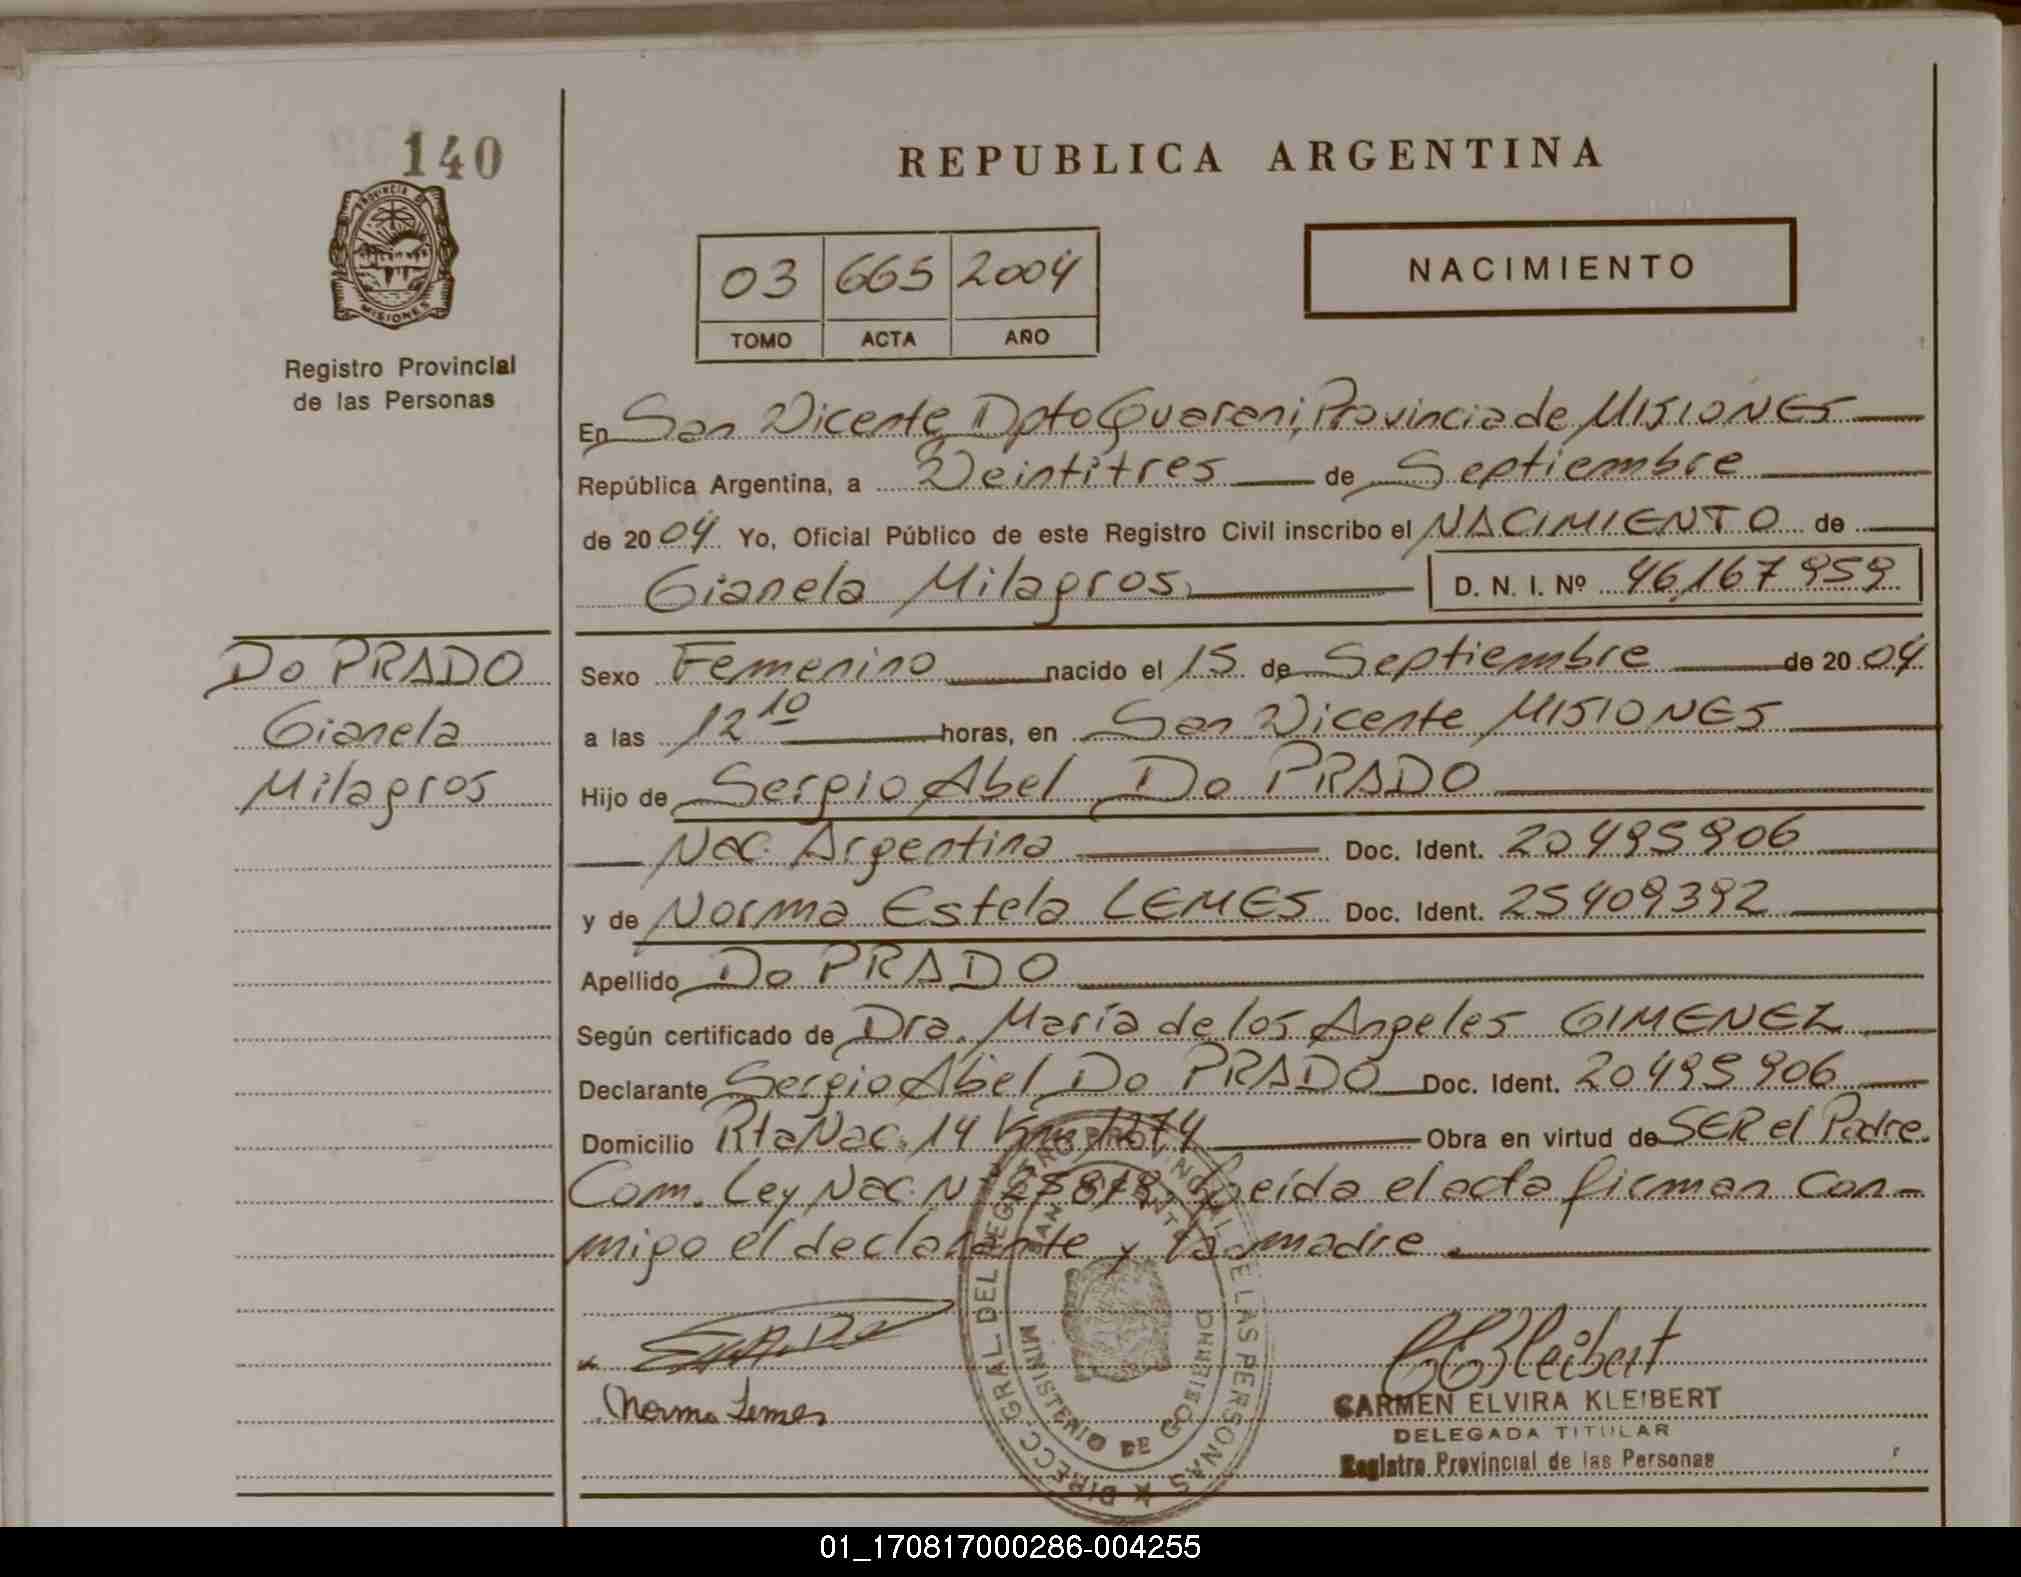 140
PROVINCIA DE
MISIONES
Registro Provincial
de las Personas
REPUBLICA ARGENTINA
03 665 2004
TOMO ACTA AÑO
NACIMIENTO
En San Vicente Dpto Guarani, Provincia de MISIONES
República Argentina, a Veintitres de Septiembre
de 2004 Yo, Oficial Público de este Registro Civil inscribo el NACIMIENTO de
Gianela Milagros. D. N. I. Nº 46,167 959
Do PRADO
Gianela
Milagros
Sexo Femenino nacido el 15 de Septiembre de 2004
a las 12 10 horas, en San Vicente MISIONES
Hijo de Sergio Abel Do PRADO
Nac. Argentina Doc. Ident. 20495906
y de Norma Estela LEMES Doc. Ident. 25409392
Apellido Do PRADO
Según certificado de Dra. María de los Angeles GIMENEZ
Declarante Sergio Abel Do PRADO Doc. Ident. 20495906
Domicilio Rta Nac. 14 Km 1274 Obra en virtud de SER el Padre.
Com. Ley Nac. Nº 25818. Leída el acta firman con-
migo el declarante y la madre.
Norma Lemes
CKleibert
CARMEN ELVIRA KLEIBERT
DELEGADA TITULAR
Registro Provincial de las Personas
DIRECC. GRAL. DEL REGISTRO PROVINCIAL DE LAS PERSONAS
SAN VICENTE
MINISTERIO DE GOBIERNO
01_170817000286-004255